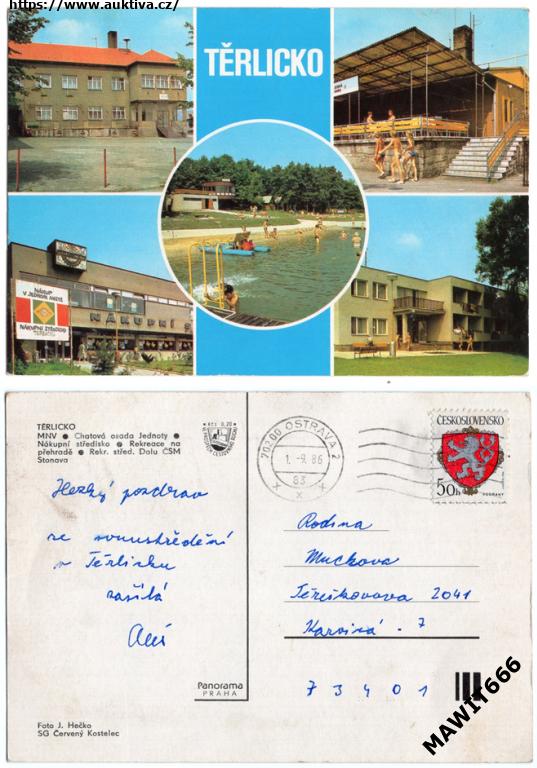 https://www.auktiva.cz/
TĚRLICKO
NÁKUP
V JEDNOTĚ
NÁKUPNÍ STŘEDISKO
NÁKUPNÍ S
TĚRLICKO
MNV ● Chatová osada Jednoty ●
Nákupní středisko ● Rekreace na
přehradě ● Rekr. střed. Dolu ČSM
Stonava
KČS 0,20
70200 OSTRAVA 2
1.-9.86
83
x x x
ČESKOSLOVENSKO
50h
PODBRANÝ
Hezký pozdrav
ze soustředění
v Těrlicku
zasílá
Rodina
Muckova
Těreškovova 2041
Karviná - 7
73401
Panorama
PRAHA
Foto J. Hečko
SG Červený Kostelec
MAWIT666